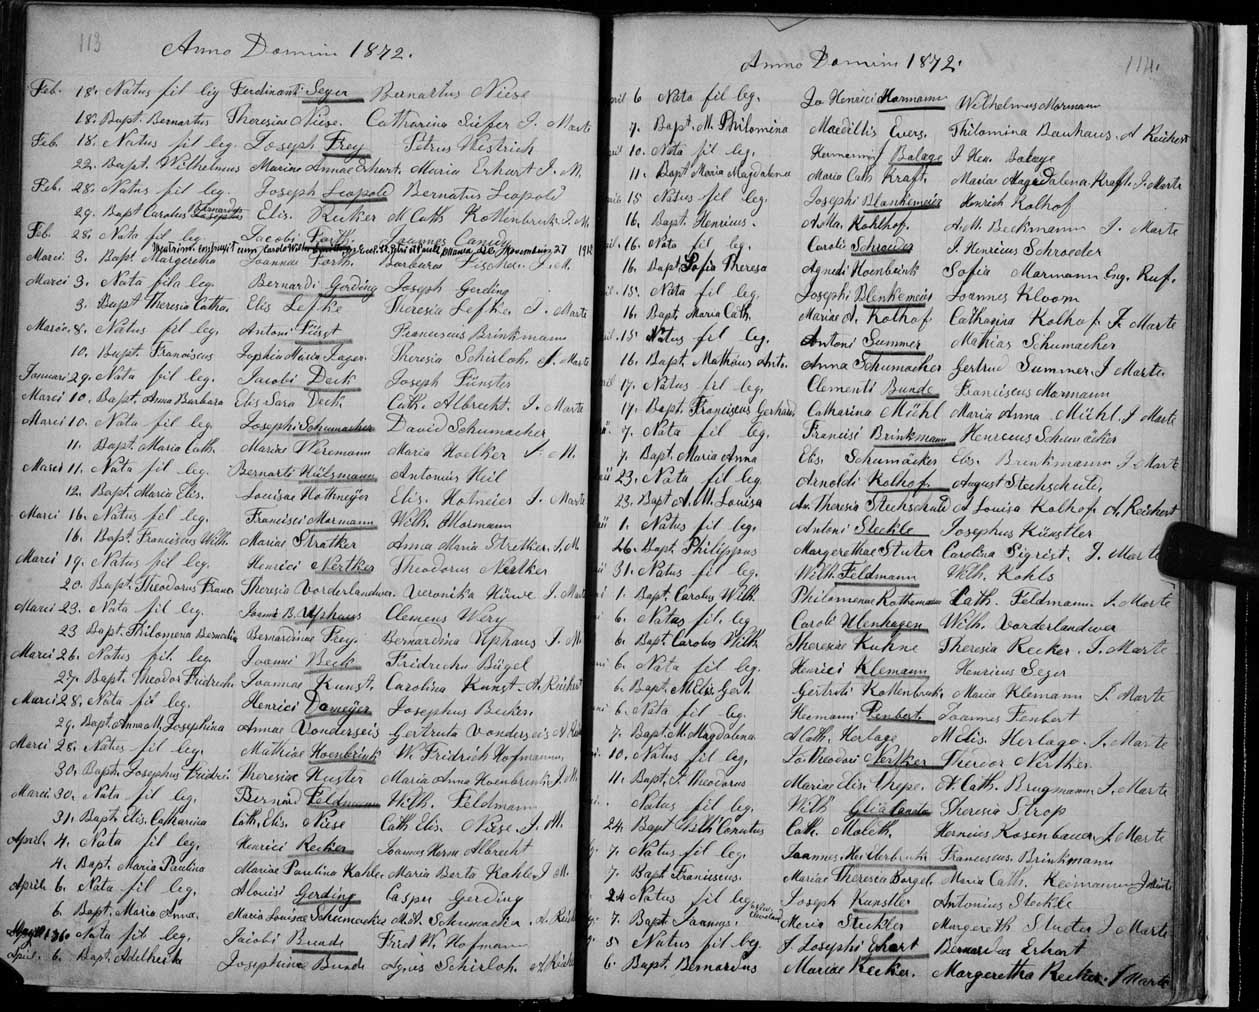 113
Anno Domini 1872.
Feb. 18. Natus fil leg Ferdinanti Seger Bernartus Niese
18. Bapt. Bernartus Theresia Niese. Catharina Siefer J. Marte
Feb. 18. Natus fil leg. Joseph Frey Petrus Westrich
22. Bapt. Wilhelmus Mariae Annae Erhart. Maria Erhart J. M.
Feb. 28. Natus fil leg. Joseph Leopold Bernatus Leopold
29. Bapt Carolus Bernardus Elis. Recker M Cath Kottenbrock J. M.
Feb. 28. Nata fil leg. Jacobi Forth Joannes
Marci 3. Bapt Margeretha Joannae Forth. Barbara Fischer. J. M.
Marci 3. Nata fila leg. Bernardi Gerding Joseph Gerding
3. Bapt Theresia Catha. Elis Lefke Theresia Lefke. J. Marte
Marci 8. Natus fil leg. Antoni Fürst Franciscus Brinkmann
10. Bapt. Franciscus Sophia Maria Jager. Theresia Schirloh. J. Marte
Januari 29. Nata fil leg. Jacobi Deck Joseph Fünster
Marci 10. Bapt. Anna Barbara Elis Sara Deck. Cath. Albrecht. J. Marte
Marci 10. Nata fil leg. Josephi Schumacher David Schumacher
11. Bapt. Maria Cath. Mariae Weremann Maria Hoelker J. M.
Marci 11. Nata fil leg. Bernarti Hülsmann Antonius Heil
12. Bapt. Maria Elis. Louisae Hottmeÿer Elis. Hotmeier J. Marte
Marci 16. Natus fil leg. Francisci Mormann Wilh. Mormann
16. Bapt. Franciscus Wilh. Mariae Stratker Anna Maria Stretker. J. M
Marci 19. Natus fil leg. Henrici Nertker Theodorus Nertker
20. Bapt. Theodorus Franc. Theresia Vorderlandwer. Veronika Hüwe J. Marte
Marci 23. Nata fil leg. Joannis B. Uphaus Clemens Wery
23 Bapt. Philomena Bernardin Bernardinae Frey. Bernardina Uphaus J. M
Marci 26. Natus fil leg. Joannis Beck Fridrich Bügel
27. Bapt. Theodor Fridrich Joannae Kunst. Carolina Kunst. A. Reichert
Marci 28. Nata fil leg. Henrici Dameÿer Josephus Becker.
29. Bapt. Anna M. Josephina Annae Vonderseis Gertruta Vonderseis A.
Marci 28. Natus fil leg. Mathiae Hoenbrink W. Fridrich Hofmann
30. Bapt. Josephus Fridri. Theresiae Kuster Maria Anna Hoenbrink J. M.
Marci 30. Nata fil leg. Bernard Feldmann Wilh. Feldmann
31. Bapt. Elis. Catharina Cath. Elis. Niese Cath Elis. Niese. J. M.
April. 4. Nata fil leg. Henrici Recker Joannes Herm Albrecht
4. Bapt. Maria Paulina Mariae Paulina Kahle. Maria Berta Kahle J. M.
April. 6. Nata fil leg. Alouisi Gerding Casper Gerding
6. Bapt. Maria Anna. Maria Louisae Schumacker Mdt. Schumacher A.
Nata fil leg. Jacobi Bunde Fried W. Hofmann
April. 6. Bapt. Adelheita Josephinae Bunde Agnis Schirloh. A.
114.
Anno Domini 1872.
6 Nata fil leg. Jo Henrici Hamann Wilhelmus Mormann
7. Bapt. M. Philomina Maedillis Evers. Philomina Bauhaus. A Reichert
10. Nata fil leg. Hermanni Balage J Hen. Balage
11. Bapt Maria Magdalena Maria Cath Kraft. Maria Magdalena Kraft. J. Marte
15 Natus fil leg. Josephi Blankemeier Henrich Kolhof
16. Bapt. Henricus. A Ma. Kolhof. A. M. Beckmann J. Marte
16. Nata fil leg. Caroli Schroeder J. Henricus Schroeder
16. Bapt. Sofia Theresa Agnedi Hoenbrink Sofia Mormann Eng. Ruf.
15. Nata fil leg. Josephi Blenkemeier Joannes Kloom
16. Bapt. Maria Cath. Mariae A. Kolhof Catharina Kolhof J. Marte
15 Natus fil leg. Antoni Summer Mathias Schumacker
16. Bapt. Mathaus Ant. Anna Schumacher Gertrud Summer J Marte.
17. Natus fil leg. Clementi Bunde Franciscus Mormann
17. Bapt. Franciscus Gerhard Catharina Mühl Maria Anna Mühl. J Marte
7. Nata fil leg. Francisi Brinkmann Henricus Schumäcker
7. Bapt. Maria Anna Elis. Schumäcker Elis. Brinkmann J Marte
23. Nata fil leg. Arnoldi Kolhof August Stechschulte.
23. Bapt A. M. Louisa An. Theresia Stechschuld A Louisa Kolhof A. Reichert
1. Natus fil leg. Antoni Steckle Josephus Künstler
26. Bapt Philippus Margerethae Stuter Carolina Sigrist. J. Marte
31. Natus fil leg. Wilh. Feldmann Wilh. Kohls
1. Bapt. Carolus Wilh. Philomenae Rothemann Cath. Feldmann J. Marte
6. Natus fil. leg. Caroli Ulenhagen Wilh. Vorderlandwer
6. Bapt Carolus Wilh Theresiae Kuhne Theresia Recker. J. Marte
6. Nata fil leg. Henrici Klemann Henricus Seger
6. Bapt. M. Elis Gert. Gertrudi Kottenbruk. Maria Klemann J. Marte
6. Nata fil leg. Hermanni Fenbert Joannes Fenbert
7. Bapt. M. Magdalena A Cath. Herlage M. Elis. Herlage. J. Marte
10. Natus fil leg. Jo Theodori Nertker Theodor Nertker
11. Bapt. J. Theodorus Mariae Elis. Trepe. A. Cath. Brugmann J. Marte
Natus fil leg. Wilh Theresia Strop
24. Bapt Wilh Conatus Cath. Moleth. Hernius Rosenbauer J. Marte
7. Natus fil leg. Joannes Franciscus Brinkmann
7. Bapt Franciscus. Mariae Theresia Borgel. Maria Cath. Reimann J Marte
24 Natus fil leg Joseph Kunstler Antonius Steckle
7. Bapt Joannes. Cleveland Maria Steckler Margareth Stuter J Marte
5 Natus fil leg. J Josephi Erhart Bernardus Erhart
6. Bapt. Bernardus Mariae Recker. Margeretha Recker. J Marte